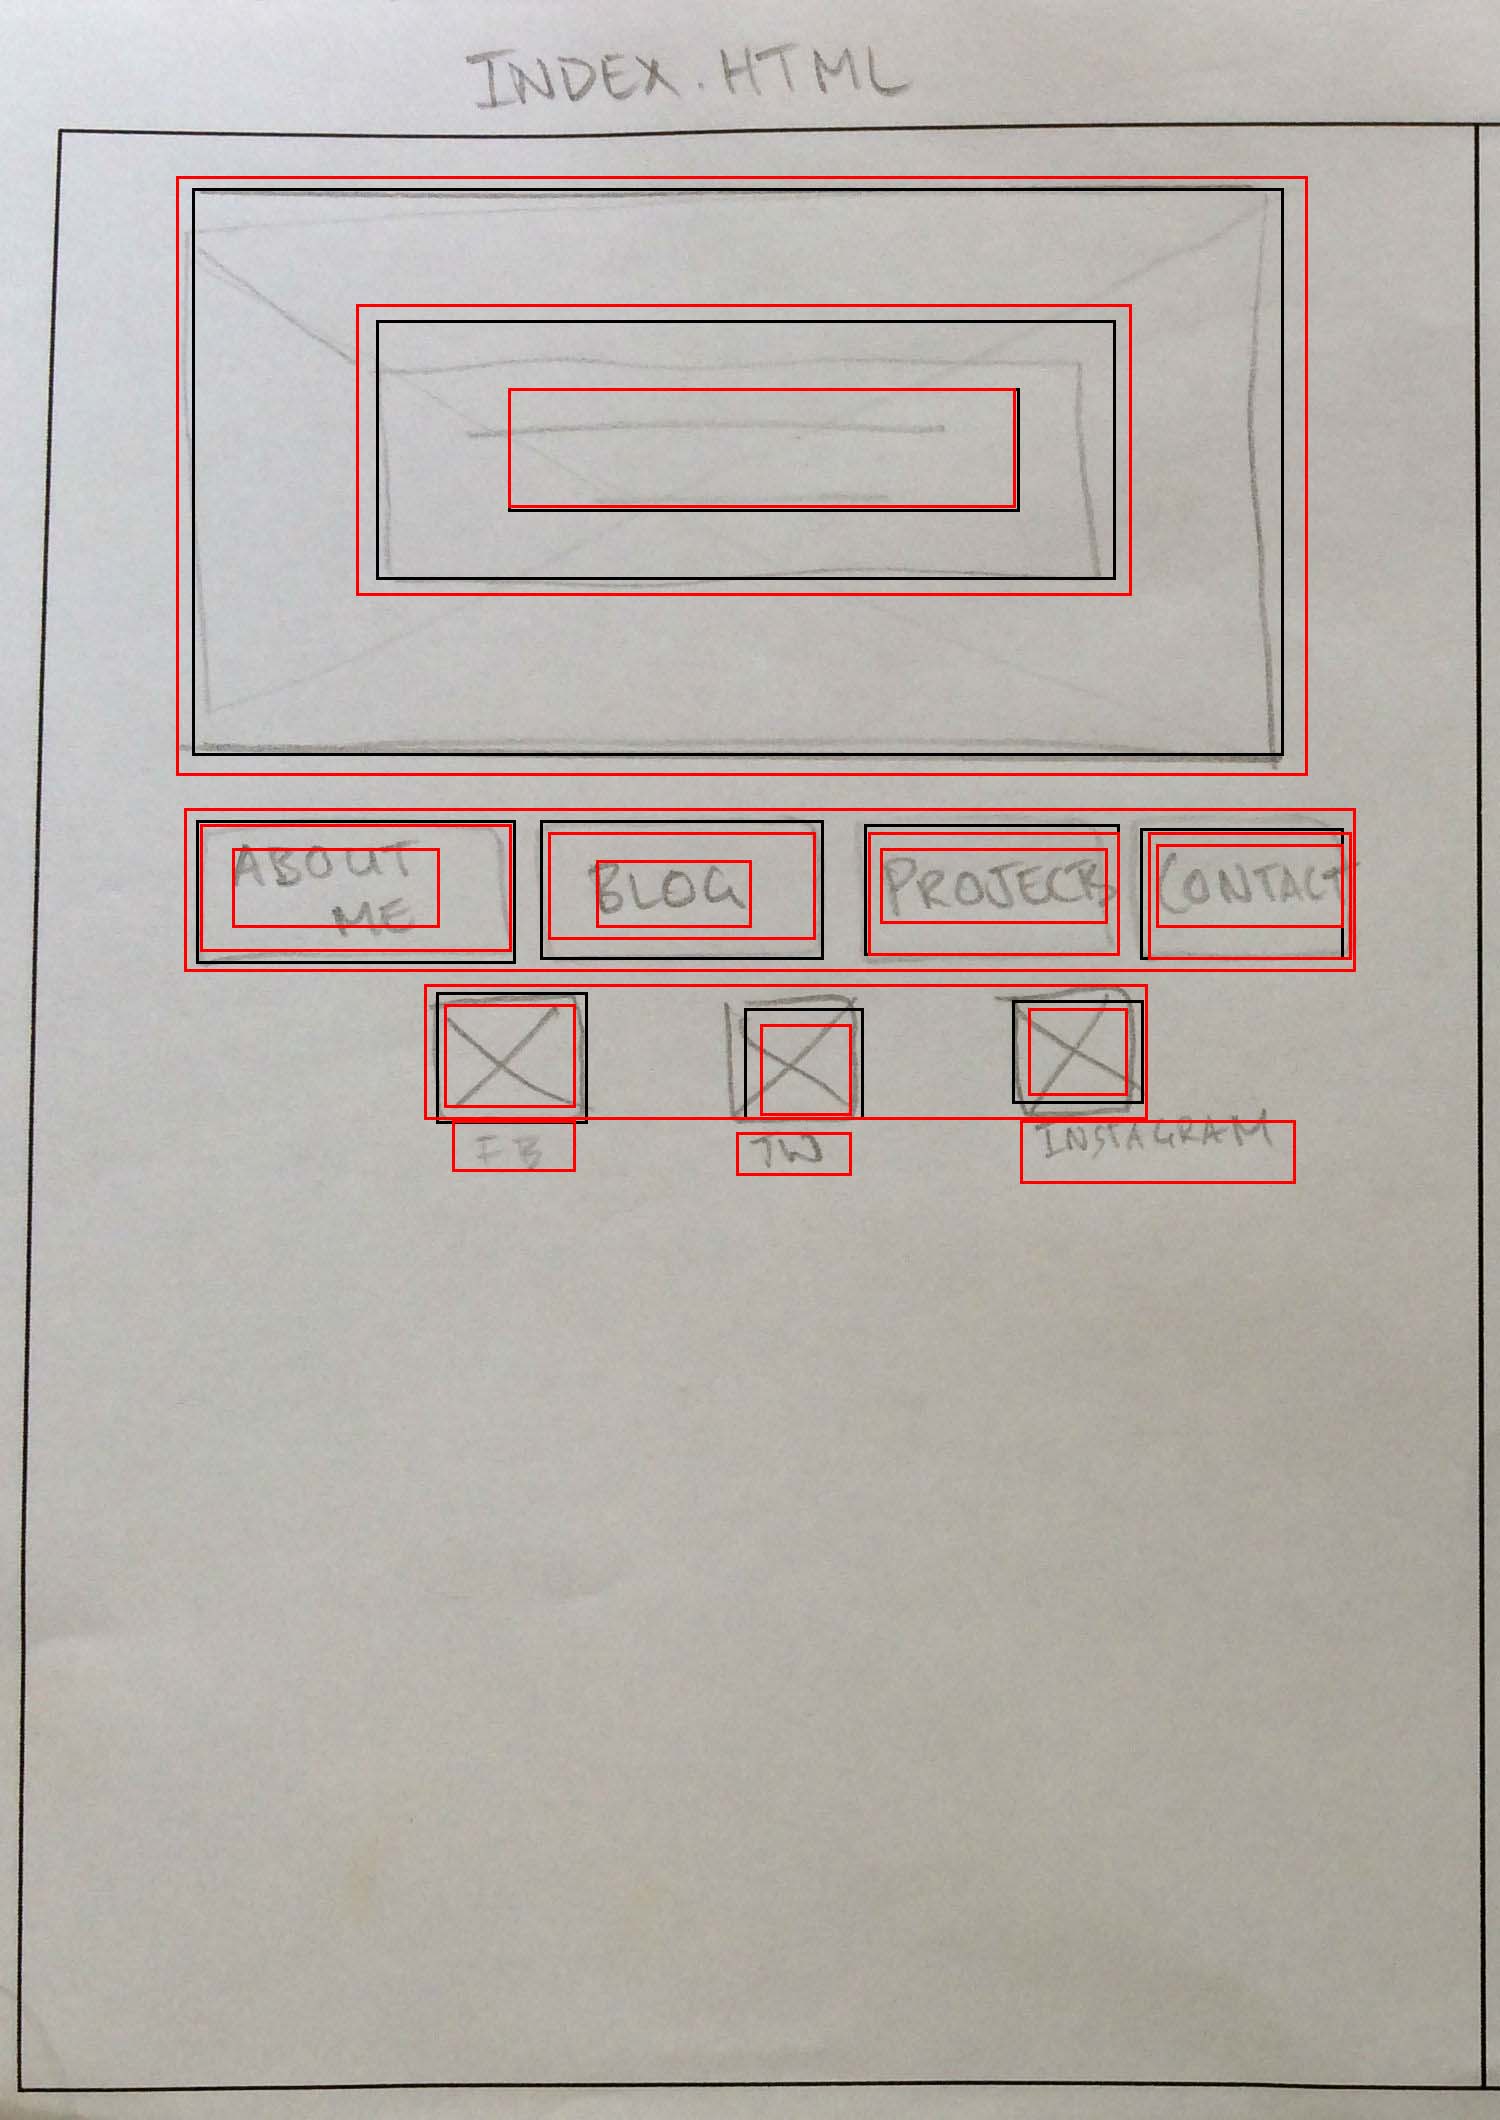 INDEX.HTML
ABOUT
ME
BLOG
PROJECTS
CONTACT
FB
TW
INSTAGRAM